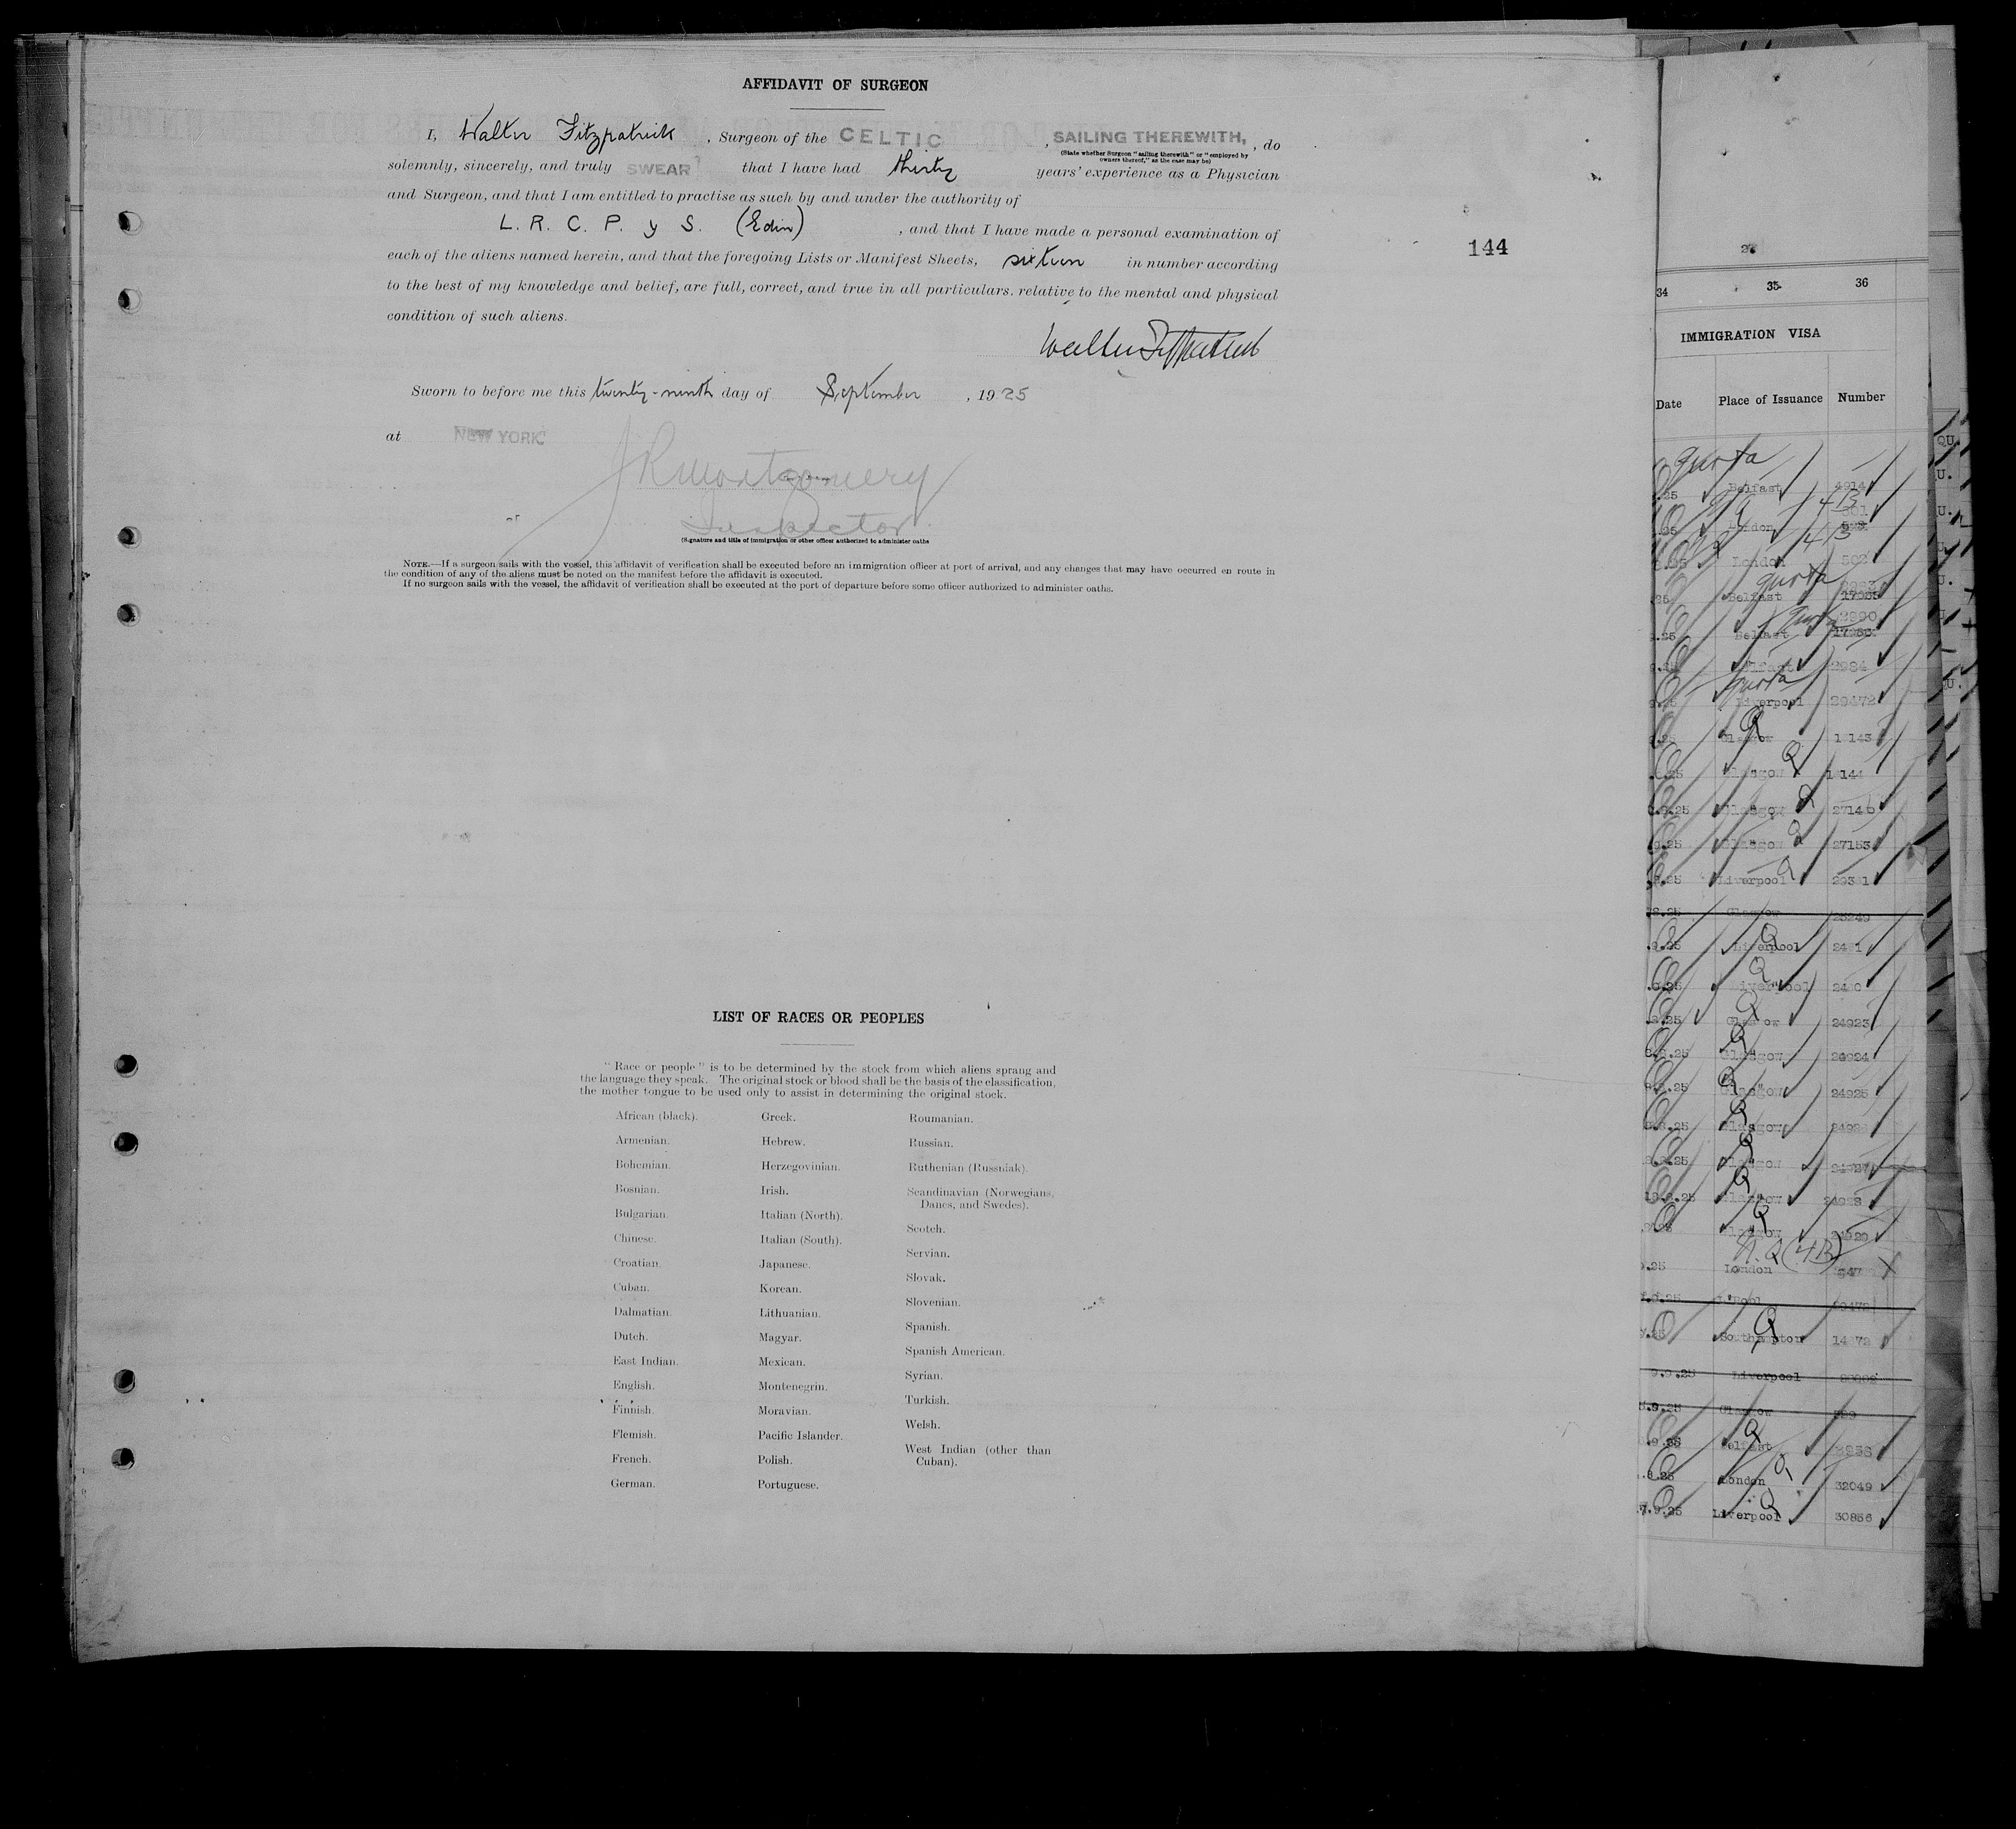 AFFIDAVIT OF SURGEON
I, Walter Fitzpatrick, Surgeon of the CELTIC, SAILING THEREWITH, , do
(State whether Surgeon "sailing therewith" or "employed by
owners thereof," as the case may be)
solemnly, sincerely, and truly SWEAR that I have had thirty years' experience as a Physician
and Surgeon, and that I am entitled to practise as such by and under the authority of
L. R. C. P. y S. (Edin) , and that I have made a personal examination of
each of the aliens named herein, and that the foregoing Lists or Manifest Sheets, sixteen in number according
to the best of my knowledge and belief, are full, correct, and true in all particulars. relative to the mental and physical
condition of such aliens.
Walter Fitzpatrick
Sworn to before me this twenty-ninth day of September , 1925
at NEW YORK
J R Montgomery
Inspector
(Signature and title of immigration or other officer authorized to administer oaths
NOTE.—If a surgeon sails with the vessel, this affidavit of verification shall be executed before an immigration officer at port of arrival, and any changes that may have occurred en route in
the condition of any of the aliens must be noted on the manifest before the affidavit is executed.
If no surgeon sails with the vessel, the affidavit of verification shall be executed at the port of departure before some officer authorized to administer oaths.
144
LIST OF RACES OR PEOPLES
"Race or people" is to be determined by the stock from which aliens sprang and
the language they speak. The original stock or blood shall be the basis of the classification,
the mother tongue to be used only to assist in determining the original stock.
African (black).
Armenian.
Bohemian.
Bosnian.
Bulgarian.
Chinese.
Croatian.
Cuban.
Dalmatian.
Dutch.
East Indian.
English.
Finnish.
Flemish.
French.
German.
Greek.
Hebrew.
Herzegovinian.
Irish.
Italian (North).
Italian (South).
Japanese.
Korean.
Lithuanian.
Magyar.
Mexican.
Montenegrin.
Moravian.
Pacific Islander.
Polish.
Portuguese.
Roumanian.
Russian.
Ruthenian (Russniak).
Scandinavian (Norwegians,
Danes, and Swedes).
Scotch.
Servian.
Slovak.
Slovenian.
Spanish.
Spanish American.
Syrian.
Turkish.
Welsh.
West Indian (other than
Cuban).
34 35 36
IMMIGRATION VISA
Date Place of Issuance Number
quota
Belfast 4914
London
4B
London 502
quota
Belfast
quota
Belfast
2984
quota
Liverpool 29472
Q
Glasgow
Q
Glasgow
Q
Glasgow
Q
Glasgow 27153
Q
Liverpool
Glasgow 25249
Q
Liverpool
Q
Liverpool
Q
Glasgow 24923
Q
Glasgow 24924
Q
Glasgow 24925
Q
Glasgow
Q
Glasgow 24927
Q
Glasgow 24928
Q
Glasgow 24929
N. Q (4B)
London
L'Pool
Q
Southampton
9.9.25 Liverpool
Glasgow
Q
Belfast
Q
London 32049
Q
Liverpool 30856